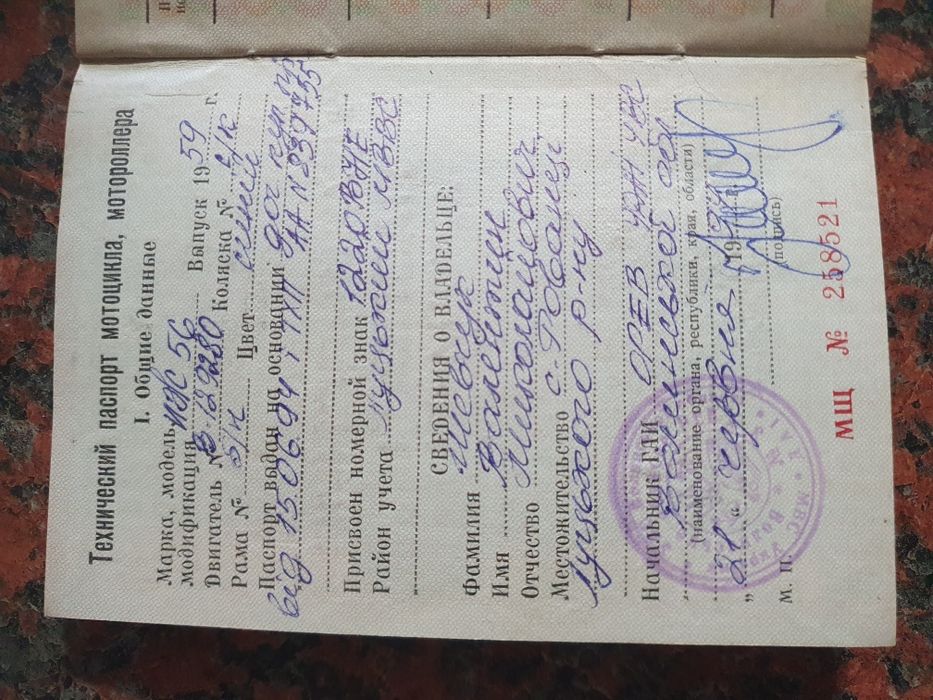 Технический паспорт мотоцикла, мотороллера
I. Общие данные
Марка, модель
модификация ИЖ 56 Выпуск 1959 г.
Двигатель № В-29280 Коляска № б/к
Рама № з/н Цвет синий
Паспорт выдан на основании
від 15.06.94 АА № 339755
Присвоен номерной знак 1220 ВНЕ
Район учета Луцький МВВС
СВЕДЕНИЯ О ВЛАДЕЛЬЦЕ:
Фамилия Шевчук
Имя Валентин
Отчество Миколайович
Местожительство с. Гованец
Луцького р-ну
Начальник ГАИ ОРЕВ УДАІ УВС
Волинської обл
(наименование органа, республики, края, области)
„21“ червня 1994
М. П. (подпись)
МЩ № 258521